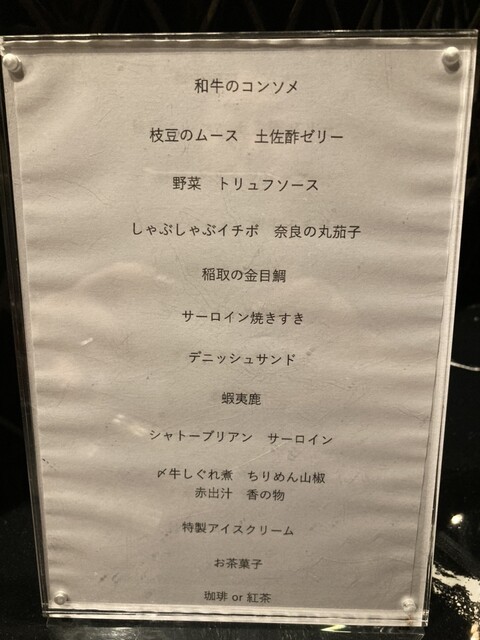 和牛のコンソメ
枝豆のムース　土佐酢ゼリー
野菜　トリュフソース
しゃぶしゃぶイチボ　奈良の丸茄子
稲取の金目鯛
サーロイン焼きすき
デニッシュサンド
蝦夷鹿
シャトーブリアン　サーロイン
〆牛しぐれ煮　ちりめん山椒
赤出汁　香の物
特製アイスクリーム
お茶菓子
珈琲 or 紅茶